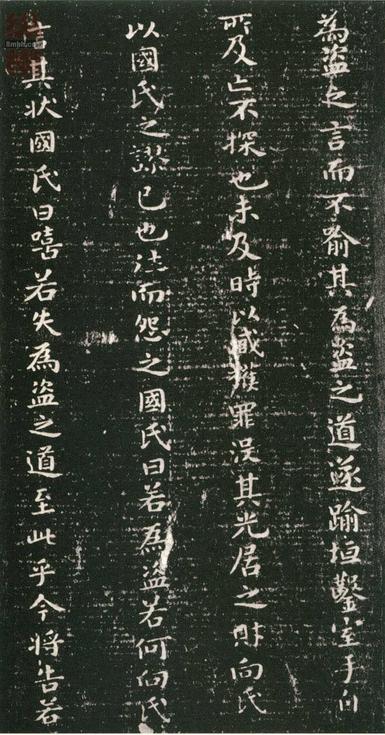 為盜之言而不喻其為盜之道遂踰垣鑿室手目
所及亡不探也未及時以臧獲罪没其先居之財向氏
以國氏之謬已也往而怨之國氏曰若為盜若何向氏
言其狀國氏曰嘻若失為盜之道至此乎今將告若